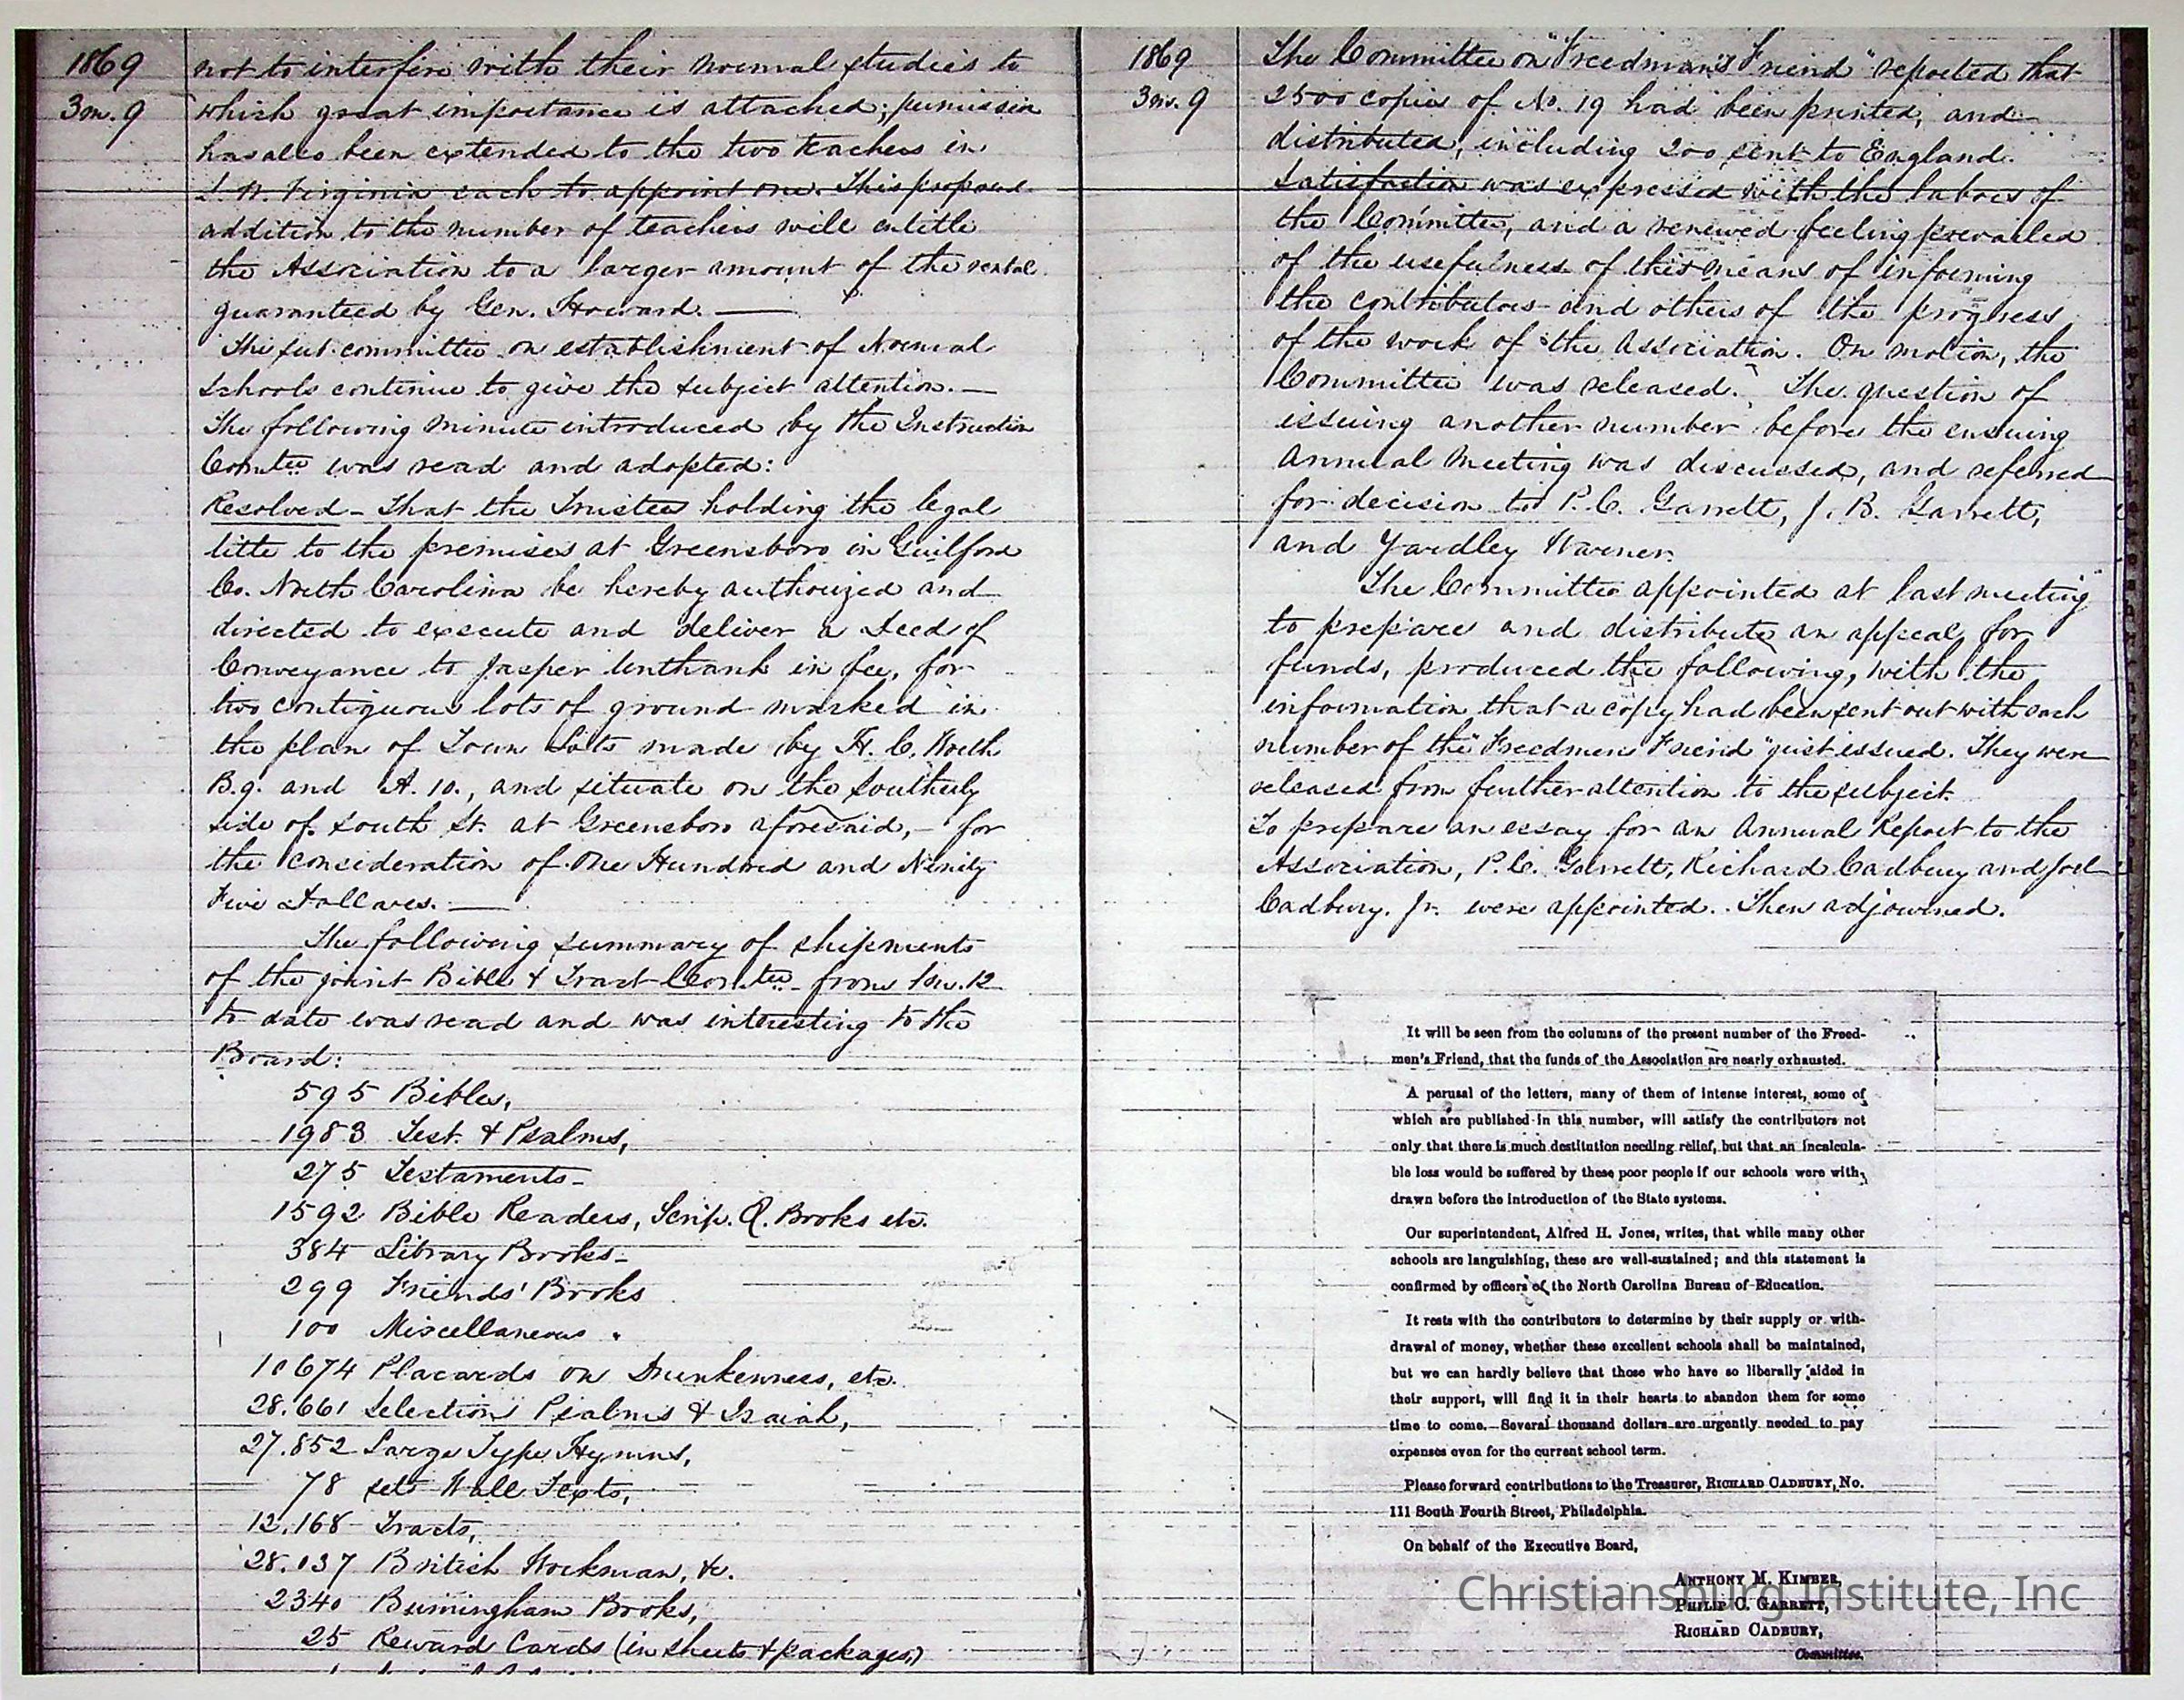 1869
3 m. 9
not to interfere with their normal studies to
which great importance is attached; permission
has also been extended to the two teachers in
S. W. Virginia each to appoint one. This proposed
addition to the number of teachers will entitle
the Association to a larger amount of the rental
guaranteed by Gen. Howard. —
The sub. committee on establishment of Normal
Schools continue to give the subject attention. —
The following minute introduced by the Instruction
Comtee was read and adopted:
Resolved - That the Trustees holding the legal
title to the premises at Greensboro in Guilford
Co. North Carolina be hereby authorized and
directed to execute and deliver a Deed of
Conveyance to Jasper Unthank in fee, for
two contiguous lots of ground marked in
the plan of Town Lots made by H. C. Worth
B. 9. and A. 10., and situate on the Southerly
side of South St. at Greensboro aforesaid, - for
the consideration of One Hundred and Ninety
Five Dollars. —
The following summary of shipments
of the joint Bible & Tract Comtee from 1 m. 12
to date was read and was interesting to the
Board:
595 Bibles,
1983 Test. & Psalms,
275 Testaments -
1592 Bible Readers, Scrip. Q. Books etc.
384 Library Books -
299 Friends' Books
100 Miscellaneous "
10674 Placards on Drunkenness, etc.
28.661 Selections Psalms & Isaiah,
27.852 Large Type Hymns,
78 sets Wall Texts,
12.168 Tracts,
28.037 British Workman, &c.
2340 Birmingham Books,
25 Reward Cards (in sheets & packages)
1869
3 m. 9
The Committee on "Freedman's Friend" reported that
2500 copies of No. 19 had been printed, and
distributed, including 200 sent to England.
Satisfaction was expressed with the labors of
the Committee, and a renewed feeling prevailed
of the usefulness of this means of informing
the contributors and others of the progress
of the work of the Association. On motion, the
Committee was released. The question of
issuing another number before the ensuing
Annual Meeting was discussed, and referred
for decision to P. C. Garrett, J. B. Garrett,
and Yardley Warner.
The Committee appointed at last meeting
to prepare and distribute an appeal for
funds, produced the following, with the
information that a copy had been sent out with each
number of the "Freedmen Friend" just issued. They were
released from further attention to the subject.
To prepare an essay for an Annual Report to the
Association, P. C. Garrett, Richard Cadbury and Joel
Cadbury, Jr. were appointed. Then adjourned.
It will be seen from the columns of the present number of the Freed-
men's Friend, that the funds of the Association are nearly exhausted.
A perusal of the letters, many of them of intense interest, some of
which are published in this number, will satisfy the contributors not
only that there is much destitution needing relief, but that an incalcula-
ble loss would be suffered by these poor people if our schools were with-
drawn before the introduction of the State systems.
Our superintendent, Alfred H. Jones, writes, that while many other
schools are languishing, these are well-sustained; and this statement is
confirmed by officers of the North Carolina Bureau of Education.
It rests with the contributors to determine by their supply or with-
drawal of money, whether these excellent schools shall be maintained,
but we can hardly believe that those who have so liberally aided in
their support, will find it in their hearts to abandon them for some
time to come.—Several thousand dollars are urgently needed to pay
expenses even for the current school term.
Please forward contributions to the Treasurer, RICHARD CADBURY, No.
111 South Fourth Street, Philadelphia.
On behalf of the Executive Board,
ANTHONY M. KIMBER,
PHILIP C. GARRETT,
RICHARD CADBURY,
Committee.
Christiansburg Institute, Inc